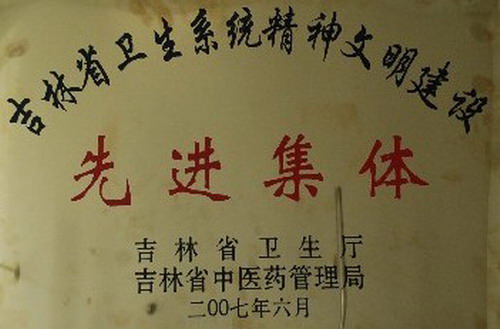 吉林省卫生系统精神文明建设
先进集体
吉林省卫生厅
吉林省中医药管理局
二00七年六月